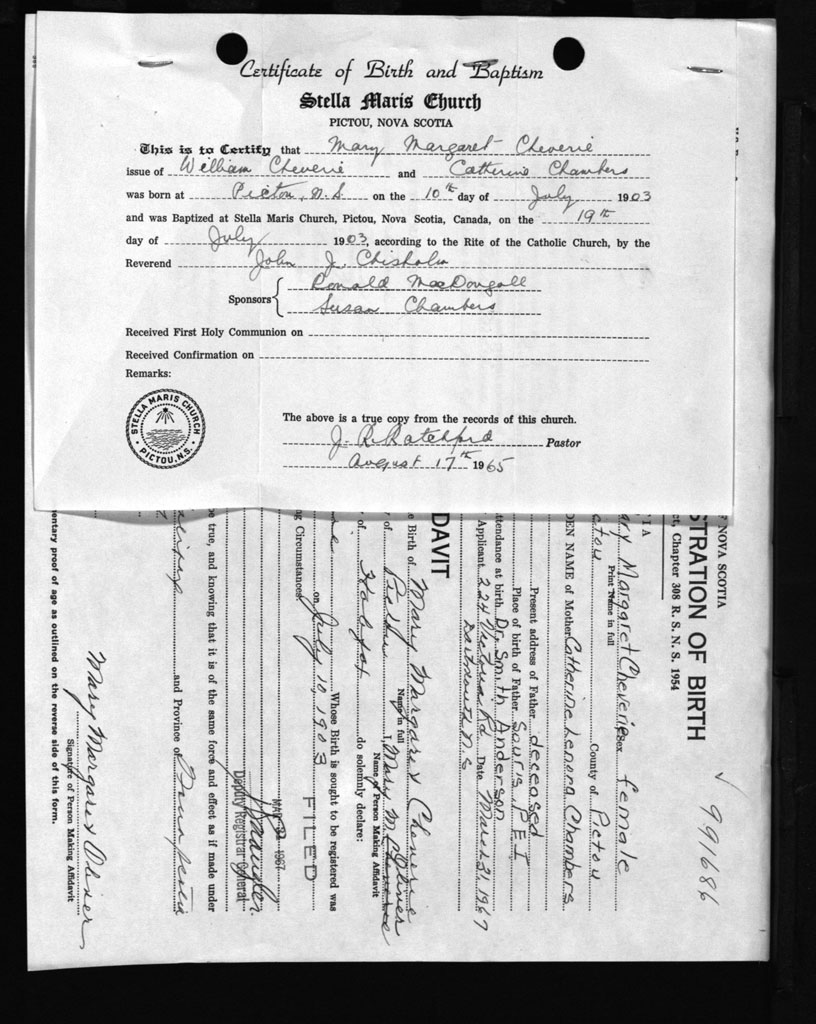 Certificate of Birth and Baptism
Stella Maris Church
PICTOU, NOVA SCOTIA
This is to Certify that Mary Margaret Cheverie
issue of William Cheverie and Catherine Chambers
was born at Pictou, N.S. on the 10th day of July 1903
and was Baptized at Stella Maris Church, Pictou, Nova Scotia, Canada, on the 19th
day of July 1903, according to the Rite of the Catholic Church, by the
Reverend John J. Chisholm
Sponsors { Ronald MacDougall
Susan Chambers
Received First Holy Communion on
Received Confirmation on
Remarks:
STELLA MARIS CHURCH
PICTOU, N.S.
The above is a true copy from the records of this church.
J. R. Ratchford Pastor
August 17th 1965
991686
F NOVA SCOTIA
STRATION OF BIRTH
ct, Chapter 308 R. S. N. S. 1954
ary Margaret Cheverie Sex female
Print Name in full
ctou County of Pictou
DEN NAME of Mother Catherine Lenora Chambers
Present address of Father deceased
Place of birth of Father Souris, PEI
ttendance at birth Dr. Smith Anderson
Applicant 224 Victoria Rd Date March 31, 1967
Dartmouth N.S
DAVIT
e Birth of Mary Margaret Cheverie
Name in full
of I, Mary M. Cheverie Oliver
Name of Person Making Affidavit
of Halifax do solemnly declare:
Whose Birth is sought to be registered was
on July 10, 1903
ng Circumstances FILED
MAY 1967
Deputy Registrar General
be true, and knowing that it is of the same force and effect as if made under
and Province of
Mary Margaret Oliver
Signature of Person Making Affidavit
mentary proof of age as outlined on the reverse side of this form.